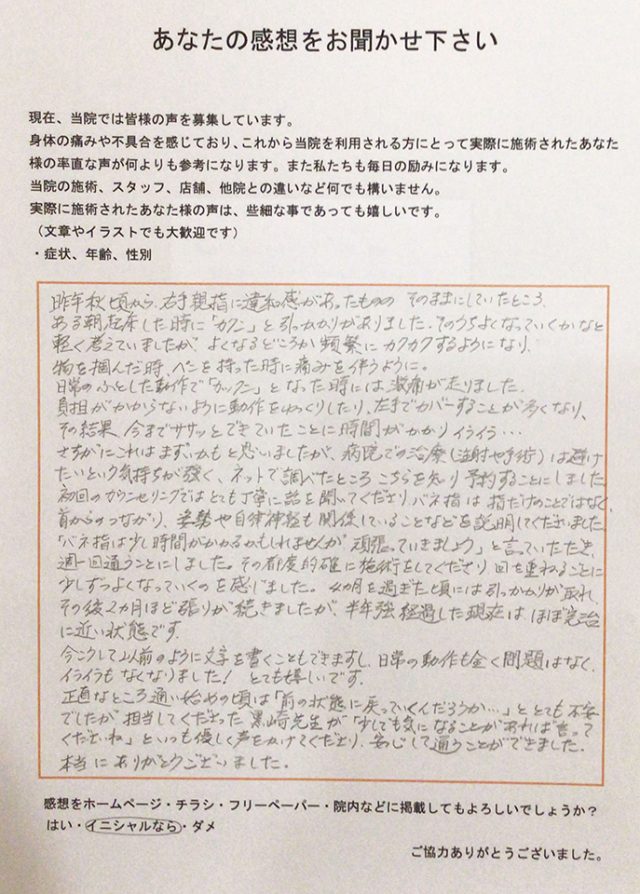 あなたの感想をお聞かせ下さい
現在、当院では皆様の声を募集しています。
身体の痛みや不具合を感じており、これから当院を利用される方にとって実際に施術されたあなた
様の率直な声が何よりも参考になります。また私たちも毎日の励みになります。
当院の施術、スタッフ、店舗、他院との違いなど何でも構いません。
実際に施術されたあなた様の声は、些細な事であっても嬉しいです。
（文章やイラストでも大歓迎です）
・症状、年齢、性別
昨年秋頃から、右手親指に違和感があったものの そのままにしていたところ、
ある朝起床した時に「カクン」と引っかかりがありました。そのうちよくなっていくかなと
軽く考えていましたが、よくなるどころか頻繁にカクカクするようになり、
物を掴んだ時、ペンを持った時に痛みを伴うように。
日常のふとした動作で「カックン」となった時には激痛が走りました。
負担がかからないように動作をゆっくりしたり、左手でカバーすることが多くなり、
その結果、今までササッとできていたことに時間がかかりイライラ…
さすがにこれはまずいかもと思いましたが、病院での治療(注射や手術)は避け
たいという気持ちが強く、ネットで調べたところこちらを知り予約することにしました。
初回のカウンセリングではとても丁寧に話を聞いてくださり、バネ指は指だけのことではなく、
前からのつながり、姿勢や自律神経も関係していることなどを説明してくださいました。
「バネ指は少し時間がかかるかもしれませんが頑張っていきましょう」と言っていただき、
週一回通うことにしました。その都度的確に施術をしてくださり回を重ねるごとに
少しずつよくなっていくのを感じました。4カ月を過ぎた頃には引っかかりが取れ、
その後2カ月ほど張りが続きましたが、半年強経過した現在は ほぼ完治
に近い状態です。
今こうして以前のように文字を書くこともできますし、日常の動作も全く問題はなく、
イライラもなくなりました！ とても嬉しいです。
正直なところ通い始めの頃は「前の状態に戻っていくんだろうか…」ととても不安
でしたが担当してくださった黒崎先生が「少しでも気になることがあれば言って
くださいね」といつも優しく声をかけてくださり、安心して通うことができました。
本当にありがとうございました。
感想をホームページ・チラシ・フリーペーパー・院内などに掲載してもよろしいでしょうか？
はい・イニシャルなら・ダメ
ご協力ありがとうございました。